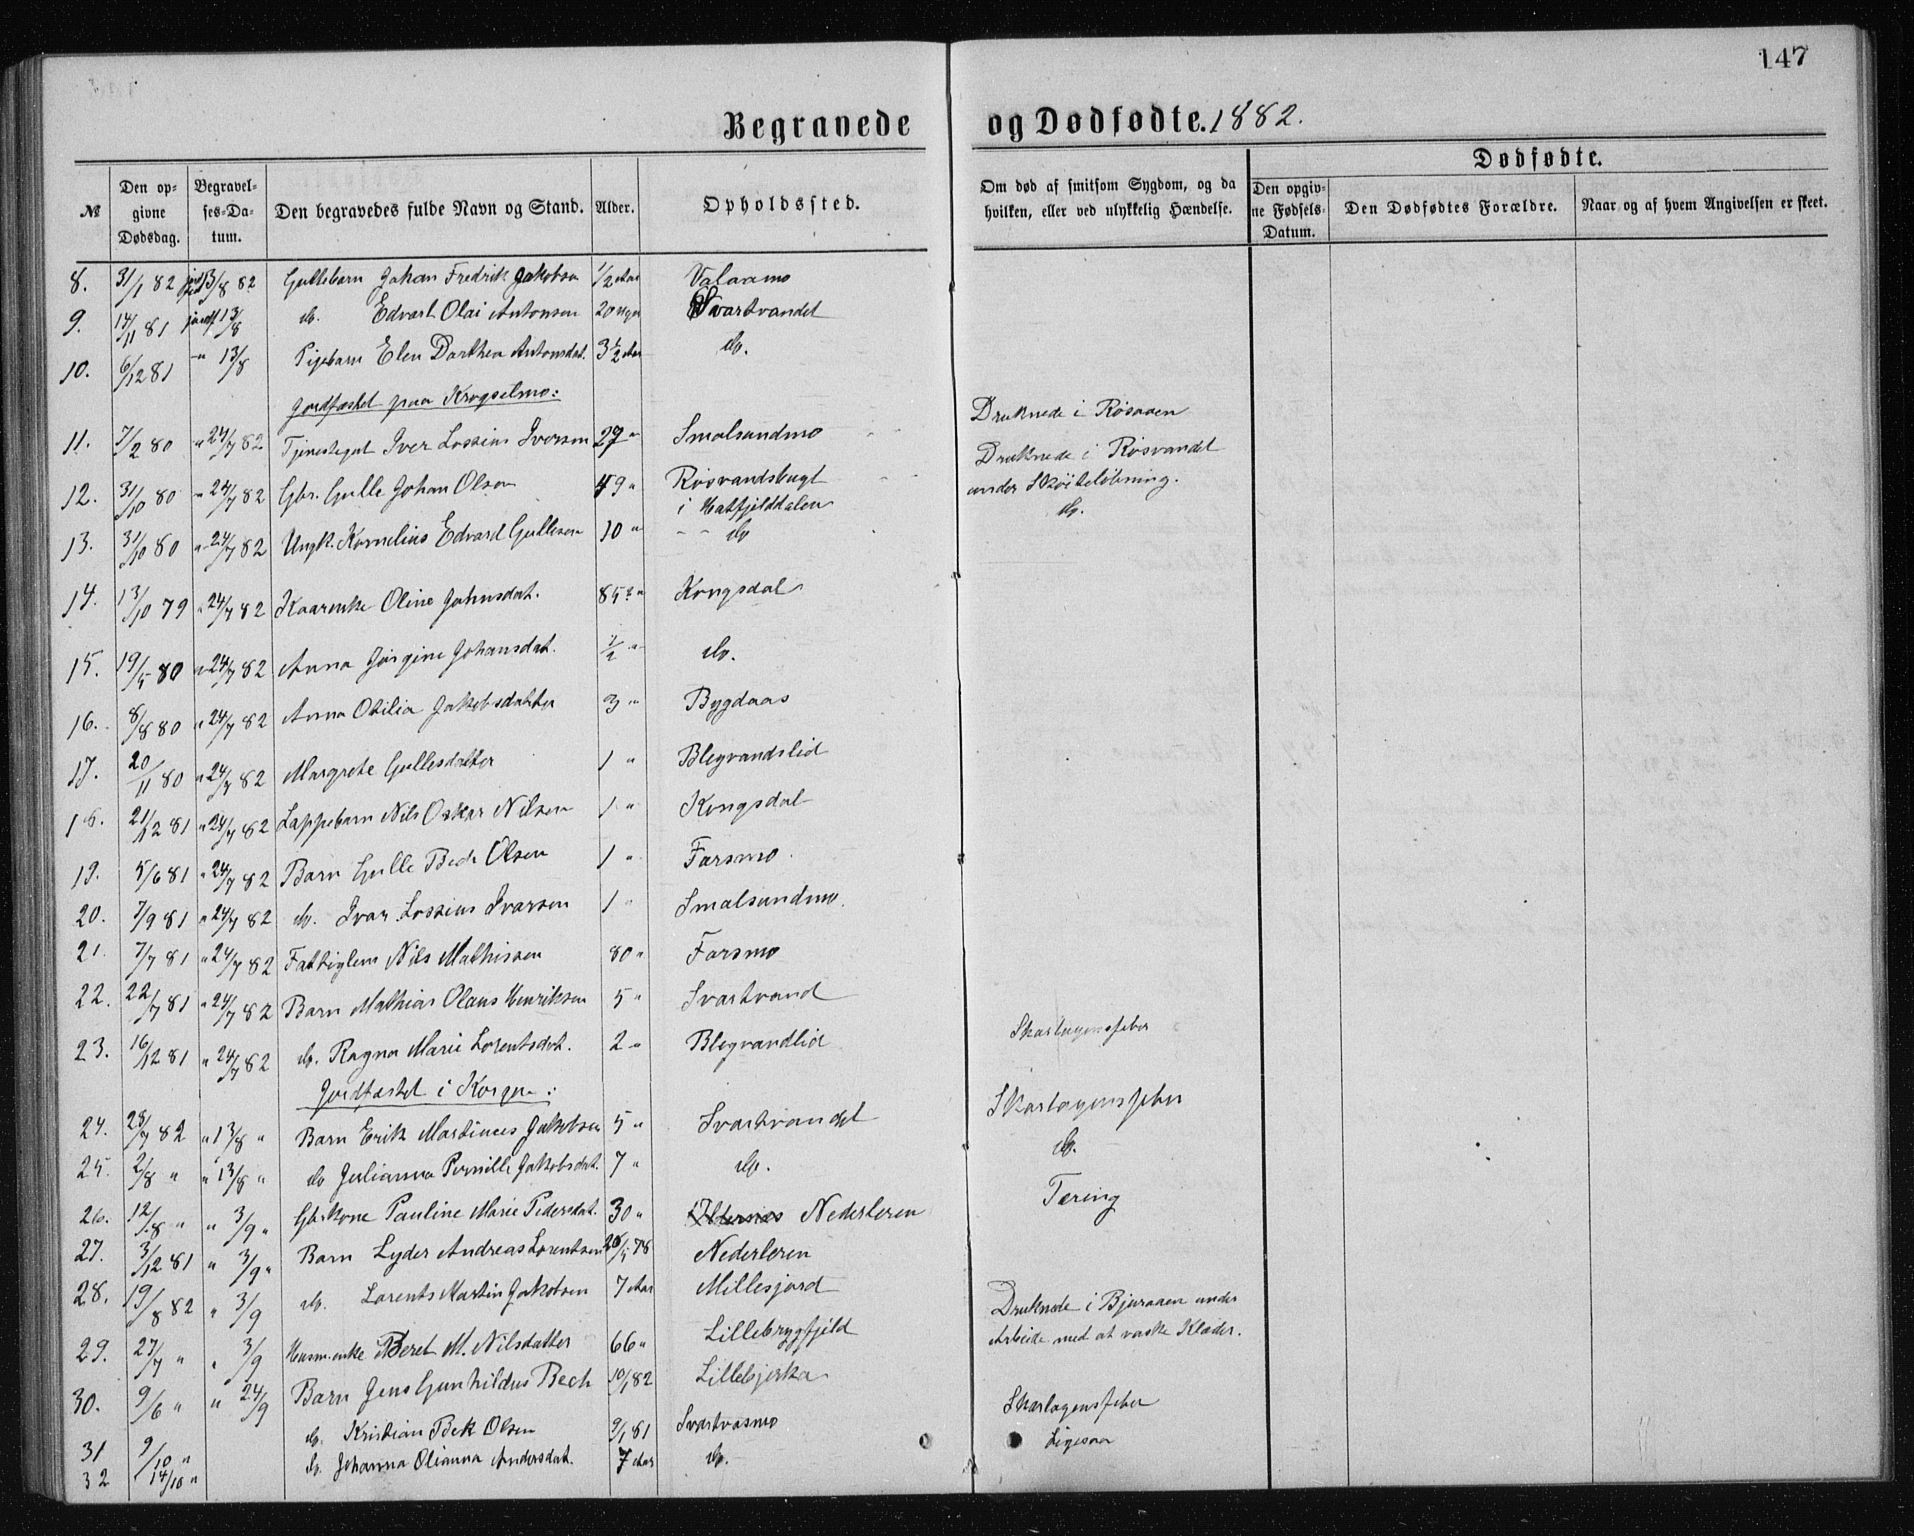 147
Begravede og Dødfødte. 1882.
№
Den opgivne Dødsdag.
Begravelses-Datum.
Den begravedes fulde Navn og Stand.
Alder.
Opholdssted.
Om død af smitsom Sygdom, og da hvilken, eller ved ulykkelig Hændelse.
Dødfødte.
Den opgivne Fødsels-Datum.
Den Dødfødtes Forældre.
Naar og af hvem Angivelsen er skeet.
8. 31/1 82 13/8 82 Guttebarn Johan Fredrik Jakobsen 1/2 Aar
9. 14/11 81 jordf 13/8 do. Edvart Olai Antonsen 20 Uger Svartvandet
10. 6/12 81 " 13/8 Pigebarn Elen Dorthea Antonsdat. 3 1/2 Aar do.
Jordfæstet paa Krogselmo:
11. 7/2 80 " 24/7 82 Tjenestegut Iver Lossius Iversen 27 " Smalsundmo Druknede i Røsaaen
12. 31/10 80 " 24/7 82 Gbr. Gulle Johan Olsen 49 " Røsvandsbugt i Hatfjelddalen Druknede i Røsvandet under Skøiteløbning.
13. 31/10 80 " 24/7 82 Ungk. Kornelius Edvard Gullesen 10 " -- do do.
14. 13/10 79 " 24/7 82 Kaarenke Oline Johnsdat. 85? " Kongsdal
15. 19/5 80 " 24/7 82 Anna Jørgine Johansdat. 1/2 " do.
16. 8/8 80 " 24/7 82 Anna Otilia Jakobsdatter 3 " Bygdaas
17. 20/11 80 " 24/7 82 Margrete Gullesdatter 1 " Blegvandslid
18. 21/12 81 " 24/7 82 Lappebarn Nils Oskar Nilsen 1 " Kongsdal
19. 5/6 81 " 24/7 82 Barn Gulle Bech Olsen 1 " Farsmo
20. 7/9 81 " 24/7 82 do. Ivar Lossius Ivarsen 1 " Smalsundmo.
21. 7/7 81 " 24/7 82 Fattiglem Nils Mathissen 80 " Farsmo
22. 22/7 81 " 24/7 82 Barn Mathias Olaus Henriksen 5 " Svartvand
23. 16/12 81 " 24/7 82 do. Ragna Marie Lorentsdat. 2 " Blegvandlid Skarlagensfeber
Jordfæstet i Korgen:
24. 28/7 82 " 13/8 " Barn Erik Martinus Jakobsen 5 " Svartvandet Skarlagensfeber
25. 2/8 " " 13/8 " do Julianna Pernille Jakobsdat. 7 " do. do.
26. 12/8 " " 3/9 " Gbrkone Pauline Marie Pedersdat. 30 " Nederleren Tæring
27. 3/12 81 " 3/9 " Barn Lyder Andreas Lorentsen 28/5 78 Nederleren
28. 19/8 82 " 3/9 do. Lorents Martin Jakobsen 7 Aar Millesjord
29. 27/7 " " 3/9 Husm.enke Beret M. Nilsdatter 66 " Lillebrygfjeld Druknede i Bjuraaen under Arbeide med at vaske Klæder.
30. 9/6 " " 24/9 Barn Jens Gunhildus Bech 10/1 82 Lillebjerka
31 9/10 " do. Kristian Bek Olsen 9/1 81 Svartvasmo Skarlagensfeber
32 14/10 " do. Johanna Olianna Andersdat. 7 Aar do. Ligesaa